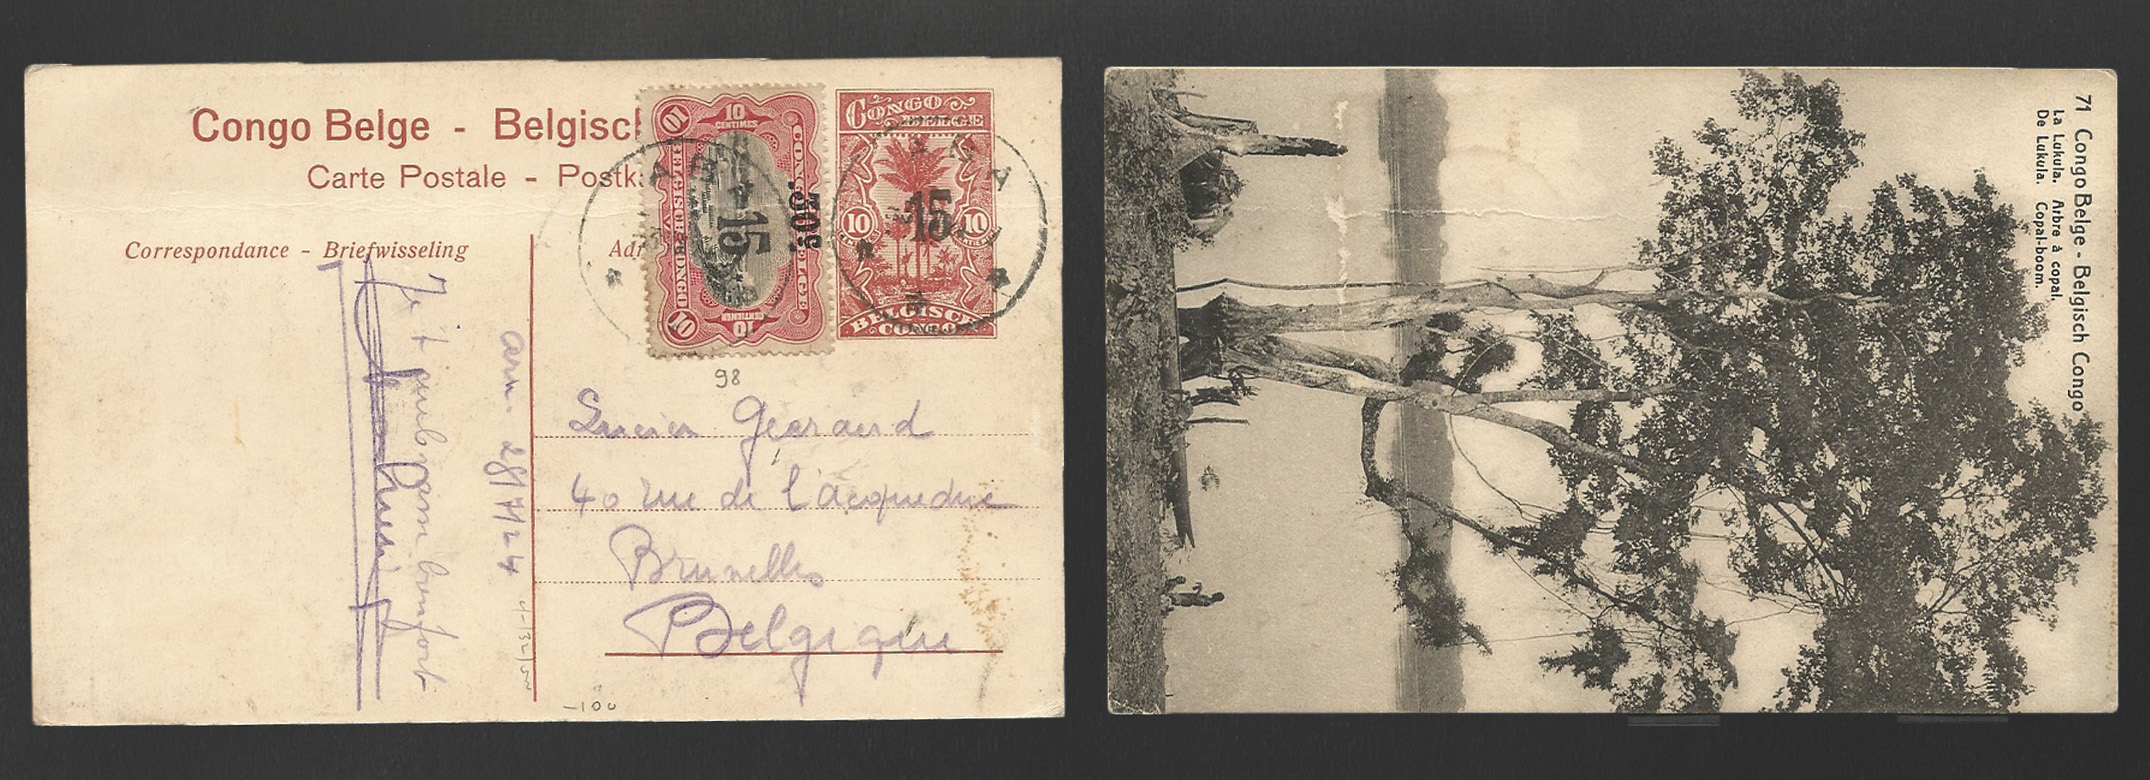 Congo Belge - Belgisch
Carte Postale - Postka
Correspondance - Briefwisseling
Adr
10
CENTIMES
10
CONGO BELGE
BELGISCH CONGO
15
.30c.
10
CENTIEMEN
10
CONGO
BELGE
15
10
10
BELGISCH
CONGO
98
Lucien Gearaerd
40 rue de l'acqueduc
Bruxelles
Belgique
Je t'embrasse bien fort
arr. 28/7/24
-100
71 Congo Belge - Belgisch Congo
La Lukula. Arbre à copal.
De Lukula. Copal-boom.